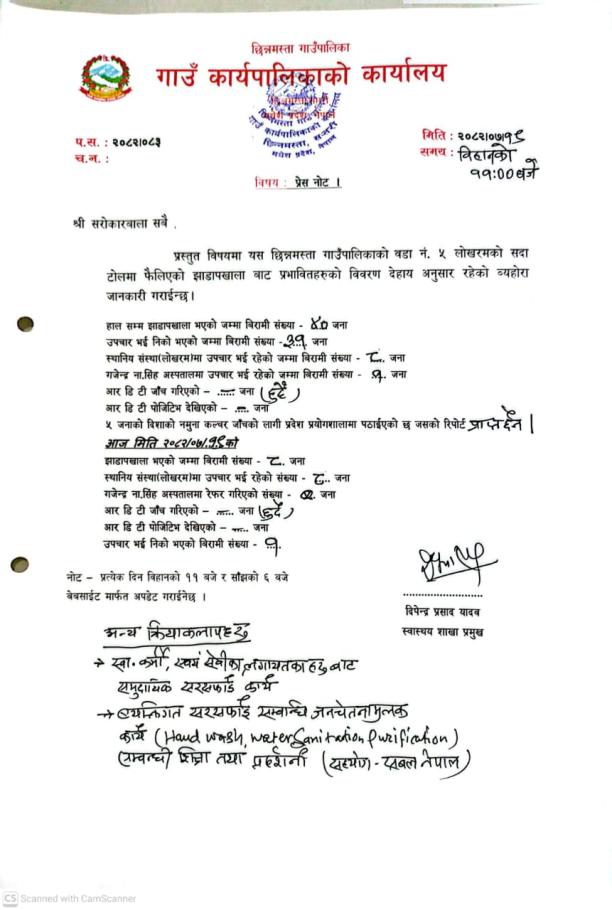 छिन्नमस्ता गाउँपालिका
गाउँ कार्यपालिकाको कार्यालय
मधेश प्रदेश, नेपाल
प.स. : २०८२/०८३
च.न. :
मिति : २०८२/०७/१९
समय : विहानको
११:०० बजे
विषय : प्रेस नोट ।
श्री सरोकारवाला सबै .
प्रस्तुत विषयमा यस छिन्नमस्ता गाउँपालिकाको वडा नं. ५ लोखरमको सदा
टोलमा फैलिएको झाडापखाला बाट प्रभावितहरुको विवरण देहाय अनुसार रहेको व्यहोरा
जानकारी गराईन्छ ।
हाल सम्म झाडापखाला भएको जम्मा बिरामी संख्या - ४० जना
उपचार भई निको भएको जम्मा बिरामी संख्या - ३१ जना
स्थानिय संस्था(लोखरम)मा उपचार भई रहेको जम्मा बिरामी संख्या - ८. जना
गजेन्द्र ना.सिंह अस्पतालमा उपचार भई रहेको जम्मा बिरामी संख्या - १. जना
आर डि टी जाँच गरिएको – ...... जना (हुदैँ)
आर डि टी पोजिटिभ देखिएको - .... जना
५ जनाको दिशाको नमुना कल्चर जाँचको लागी प्रदेश प्रयोगशालामा पठाईएको छ जसको रिपोर्ट
आज मिति २०८२/०७/१९ को
झाडापखाला भएको जम्मा बिरामी संख्या - ८. जना
स्थानिय संस्था(लोखरम)मा उपचार भई रहेको संख्या - ८.. जना
गजेन्द्र ना.सिंह अस्पतालमा रेफर गरिएको संख्या - जना
आर डि टी जाँच गरिएको – ..... जना (हुदैँ)
आर डि टी पोजिटिभ देखिएको - ..... जना
उपचार भई निको भएको बिरामी संख्या - १
नोट – प्रत्येक दिन विहानको ११ बजे र साँझको ६ बजे
बेबसाईट मार्फत अपडेट गराईनेछ ।
दिपेन्द्र प्रसाद यादव
स्वास्थय शाखा प्रमुख
अन्य क्रियाकलापहरु
→ स्वा. कर्मी, स्वयं सेवीका, लगायतका हरु बाट
समुदायिक सरसफाई कार्य
→ व्यक्तिगत सरसफाई सम्बन्धि जनचेतनामुलक
कार्य (Hand wash, water Sanitation Purification)
सम्बन्धी शिक्षा तथा प्रदर्शनी (सहयोग - सबल नेपाल)
CS Scanned with CamScanner